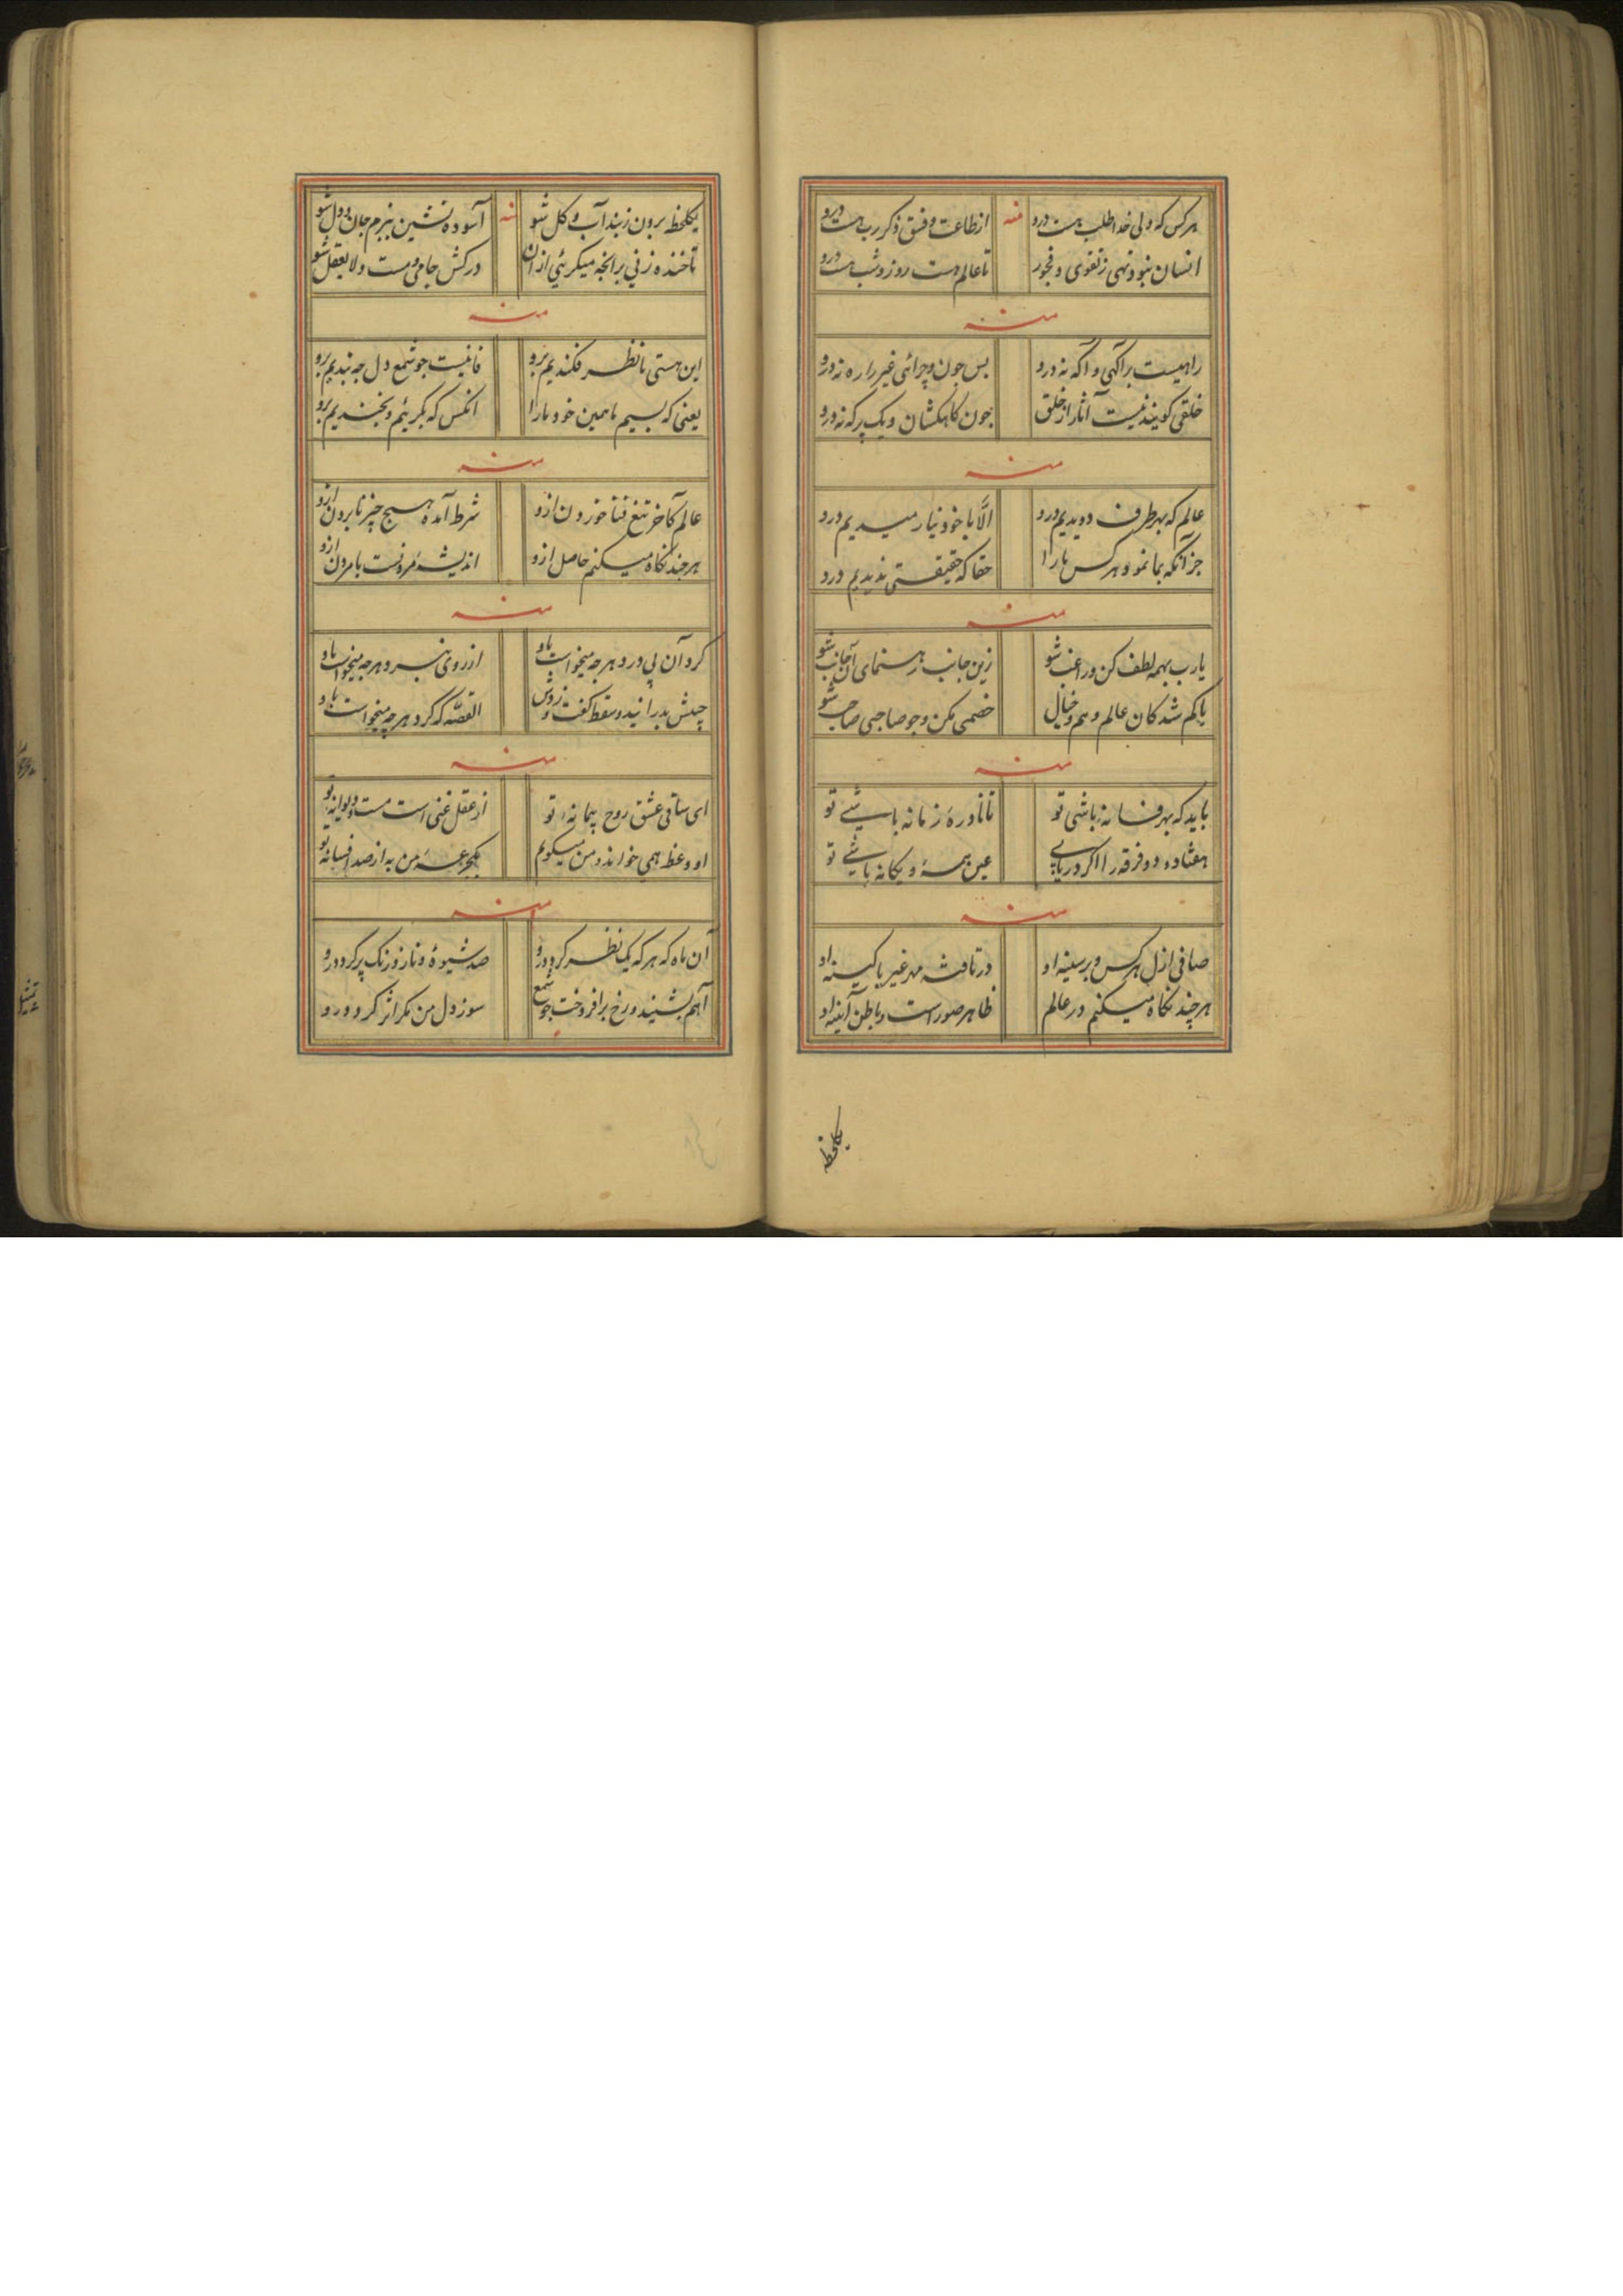 هرکس که ولی خدا طلب هست درو
از طاعت و فسق ذکر رب هست درو
منه
انسان نبود تهی ز تقوی و فجور
تا عالم هست روز و شب هست درو
منه
راهیست پر آکهی و آکه نه درو
بس چون و چرائی غیر را ره نه درو
خلقی کویند نیست آثار از خلق
چون کاهکشان و یک پر که نه درو
منه
عالم که بهر طرف دویدیم درو
الّا با خود نیارمیدیم درو
جز آنکه بما نمود هرکس ما را
حقا که حقیقتی ندیدیم درو
منه
یارب بهمه لطف کن و راغب شو
زین جانب رهنمای آن جانب شو
با کم شدکان عالم وهم و خیال
خصمی مکن و چو صاحبی صاحب شو
منه
باید که بهر فسانه باشی تو
تا نادرهٔ زمانه باشی تو
هفتاد و دو فرقه را اکر دریابی
عین همهٔ و یکانه باشی تو
منه
صافی ازل هرکس و بر سینه او
در تافته مهر غیر با کینه او
هر چند نکاه میکنم در عالم
ظاهر صور است و باطن آیینه او
یکلحظه
یکلحظه برون ز بند آب و کل شو
آسوده نشین ببزم جان و دل شو
منه
تا خنده زنی بر آنچه میکریی از آن
درکش جامی و مست و لایعقل شو
منه
این هستی تا نظر فکندیم برو
فانیست چو شمع دل چه بندیم برو
یعنی که بسیم ما همین خود ما را
آنکس که بکریم و بخندیم برو
منه
عالم کآخر تیغ فنا خورون ازو
شرط آمده هیچ چیز نابردن ازو
هر چند نکاه میکنم حاصل ازو
اندیشهٔ مردنست با مردن ازو
منه
کرد آن پی درو هرچه میخواست باو
از روی نبرد هرچه میخواست باو
چشمش بدرانید و سقط کفت و زدش
القصّه که کرد هرچه میخواست باو
منه
ای ساقی عشق روح پیمانهٔ تو
از عقل غنی است مست و دیوانهٔ تو
او وعظ همی خواند و من میکویم
یکجرعهٔ من به از صد افسانهٔ تو
منه
آن ماه که هرکه یک نظر کرد درو
صد شیوهٔ و ناز و رنک پر کرد درو
آهم بشنید و رخ برافروخت چو شمع
سوز دل من مکر اثر کرد درو